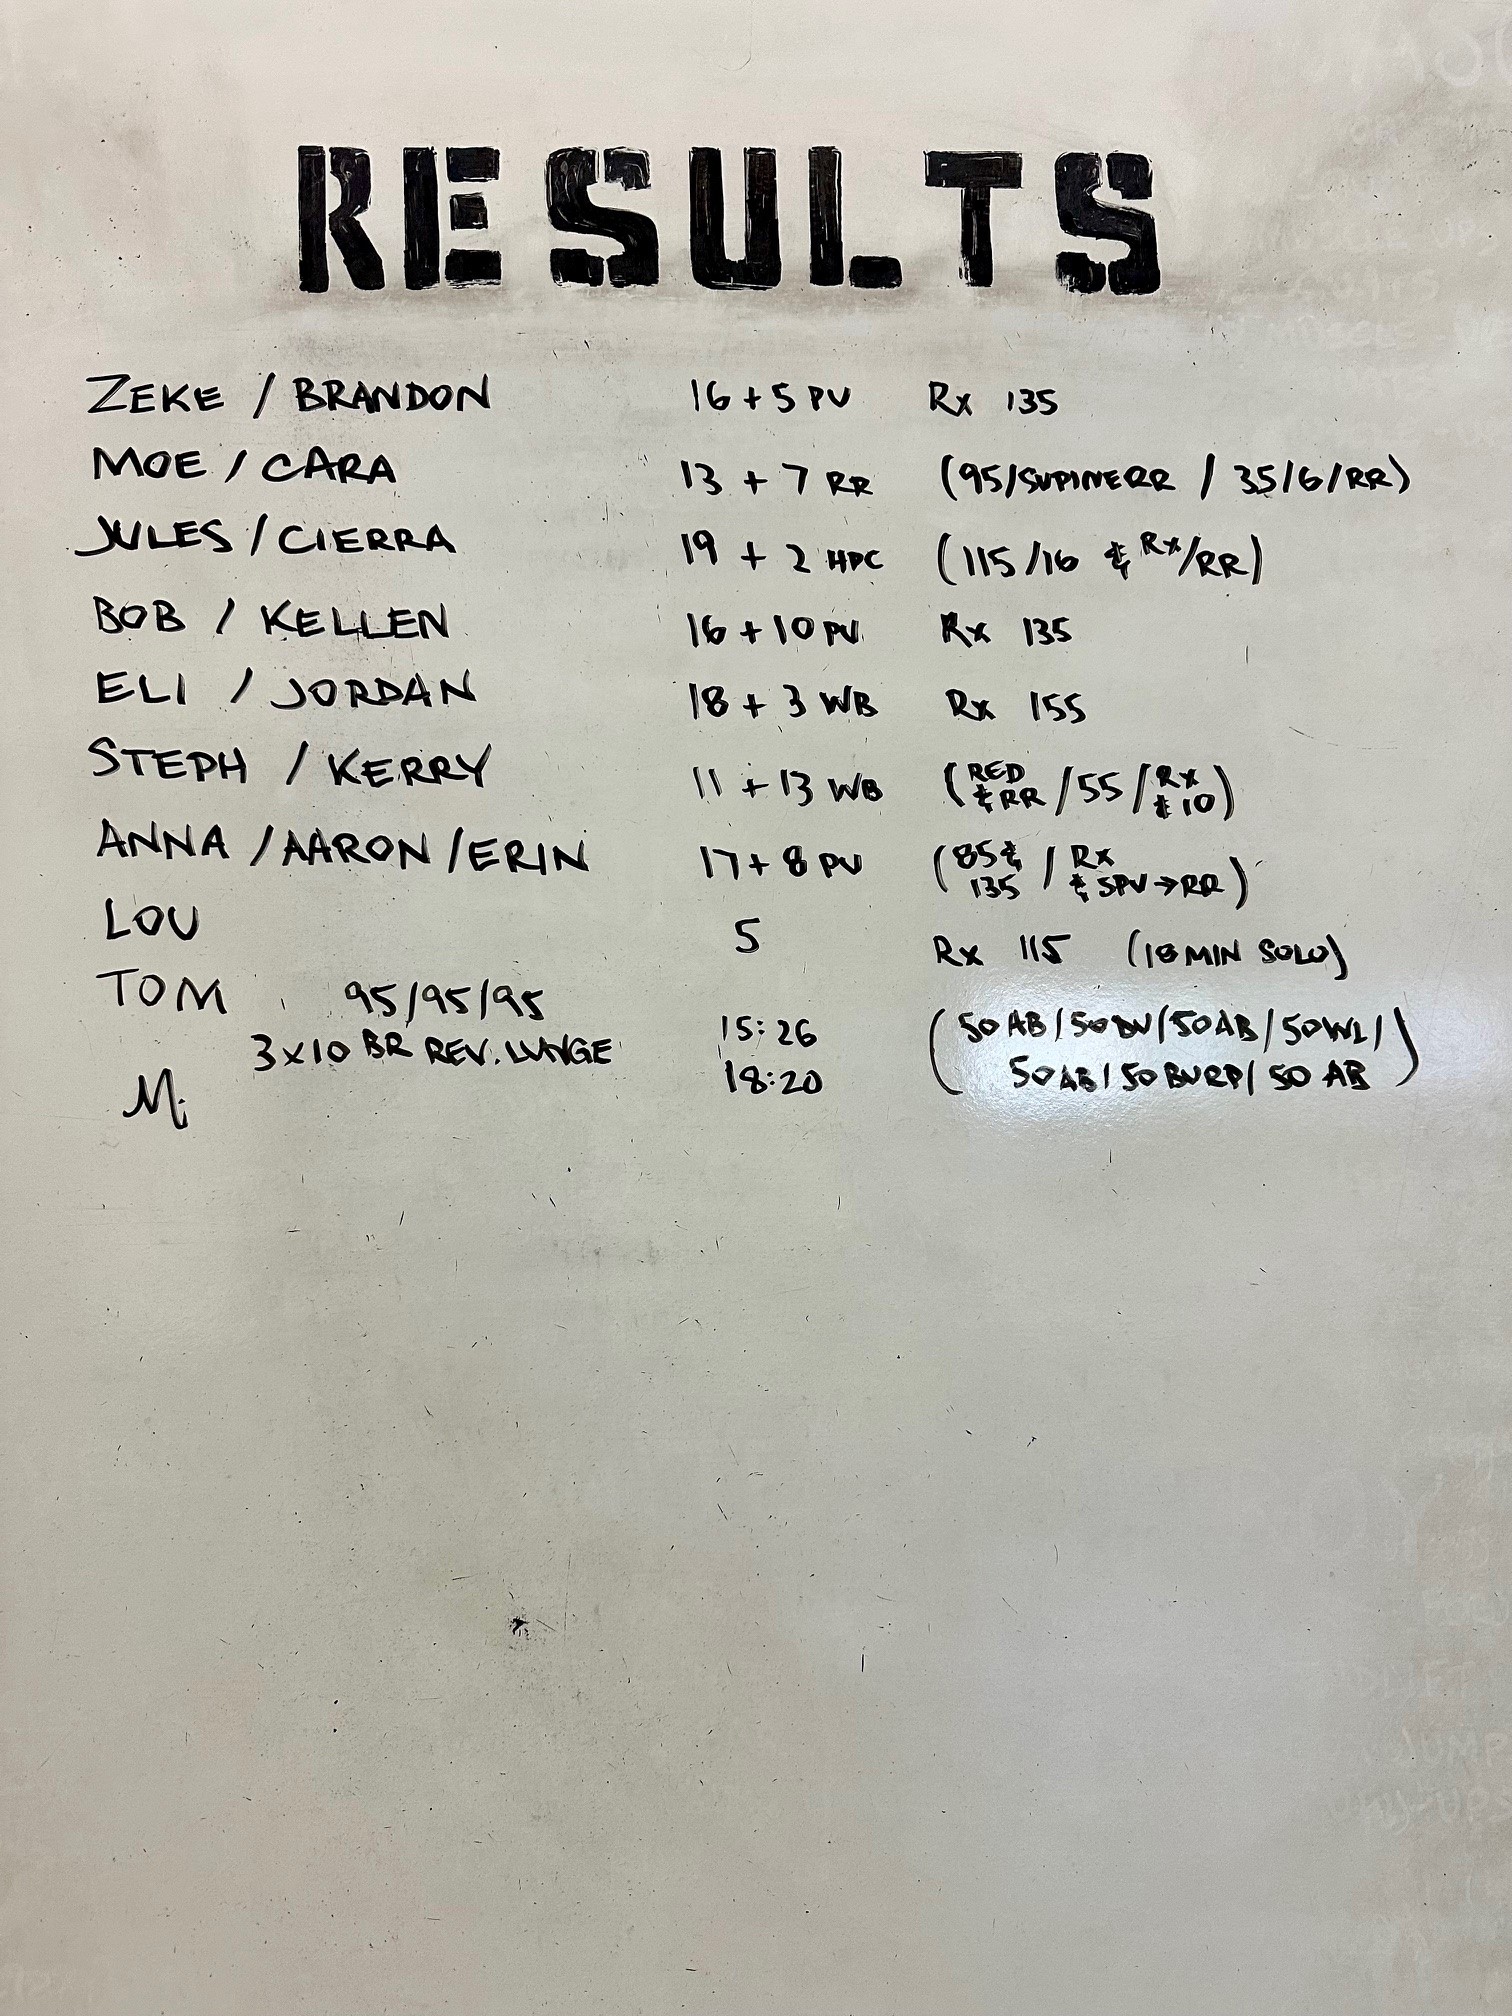 RESULTS
ZEKE / BRANDON 16 + 5 PU Rx 135
MOE / CARA 13 + 7 RR (95/SUPINERR / 35/6/RR)
JULES / CIERRA 19 + 2 HPC (115/16 & Rx/RR)
BOB / KELLEN 16 + 10 PU Rx 135
ELI / JORDAN 18 + 3 WB Rx 155
STEPH / KERRY 11 + 13 WB (RED & RR / 55 / Rx & 10)
ANNA / AARON / ERIN 17 + 8 PU (85 & 135 / Rx & SPU → RR)
LOU 5 Rx 115 (18 MIN SOLO)
TOM 95/95/95 15:26 (50 AB / 50 DU / 50 AB / 50 WL /
3x10 BR REV. LUNGE 18:20 50 AB / 50 BURP / 50 AB)